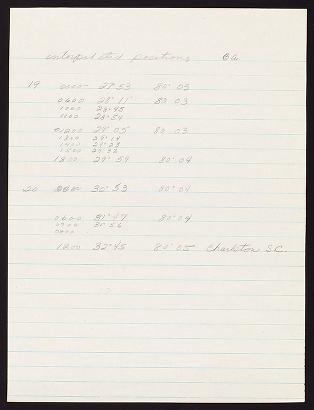 interpolated positions 6a
19 0000 27°53 80° 03
0600 28°11' 80 03
1000 28-45
1100 28-54
1200 29°05 80° 03
1300 29°14
1400 29°23
1500 29°32
1800 29° 59 80° 04
20 0000 30° 53 80° 04
0600 31°47 80°04
0700 31°56
0800
1200 32°45 80° 05 Charleston S.C.